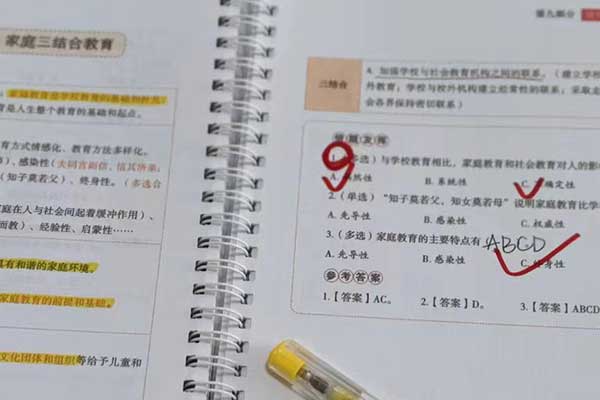 家庭三结合教育
家庭教育是学校教育的基础和补充
育是人生整个教育的基础和起点。
育方式情感化、教育方法多样化。
）、感染性（夫同言而信，信其所亲；
（知子莫若父）、终身性。（多选合
庭在人与社会间起着缓冲作用）、
而教）、经验性、启蒙性……
具有和谐的家庭环境。
家庭教育的前提和基础。
文化团体和组织等给予儿童和
第九部分
三结合
4. 加强学校与社会教育机构之间的联系。（建立学校
外教育；学校与校外机构建立经常性的联系；采取走
会各界保持密切联系）
1.（多选）与学校教育相比，家庭教育和社会教育对人的影
B. 系统性
C. 不确定性
2.（单选）“知子莫若父，知女莫若母”说明家庭教育比学
A. 先导性
B. 感染性
C. 权威性
3.（多选）家庭教育的主要特点有
ABCD
A. 先导性
B. 感染性
C. 终身性
参考答案
1.【答案】AC。
2.【答案】D。
3.【答案】ABCD